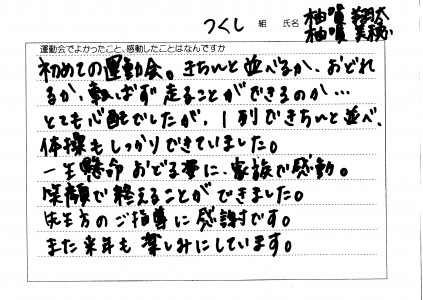 つくし 組 氏名
運動会でよかったこと、感動したことはなんですか
初めての運動会。きちんと並べるか、おどれ
るか、転ばず走ることができるのか…
とても心配でしたが、1列できちんと並べ、
体操もしっかりできていました。
一生懸命おどる姿に、家族で感動。
笑顔で終えることができました。
先生方のご指導に感謝です。
また来年も楽しみにしています。